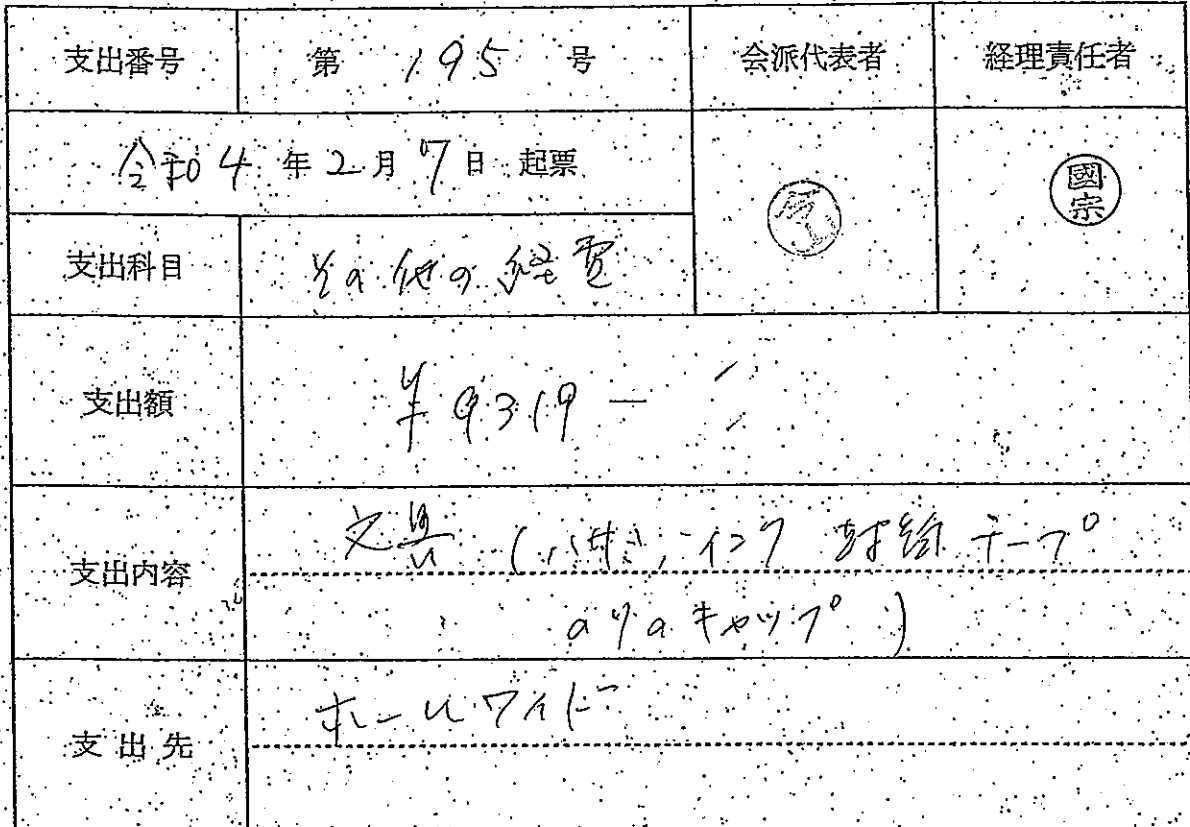 支出番号 第 195 号 会派代表者 経理責任者
令和4年2月7日 起票
國宗
支出科目 その他の経費
支出額 ¥9319-
支出内容 文具 (ハサミ, インク 封緘テープ
のりのキャップ)
支出先 ホールワイド